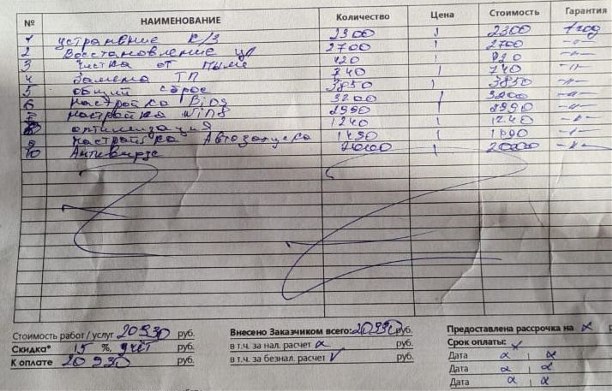 № НАИМЕНОВАНИЕ Количество Цена Стоимость Гарантия
1 устранвние К/З 2300 1 2300 1 год
2 Восстановление 2700 1 2700 -"-
3 Чистка от пыли 1 -"-
4 Замена ТП 740 1 740 -"-
5 общий сброс 3850 1 3850 -"-
6 настройка Bios 3200 1 -"-
7 настройка Win8 2990 1 2990 -"-
8 оптимизация 1240 1 1240 -"-
9 настройка Автозапуска 1490 1 -"-
10 Антивирус 1 -"-
Стоимость работ / услуг 20930 руб. Внесено Заказчиком всего: 20930 руб. Предоставлена рассрочка на x
Скидка* 15 %, учёт руб. в т.ч. за нал. расчет x руб. Срок оплаты: x
К оплате 20930 руб. в т.ч. за безнал. расчет V руб. Дата x x
Дата x x
Дата x x